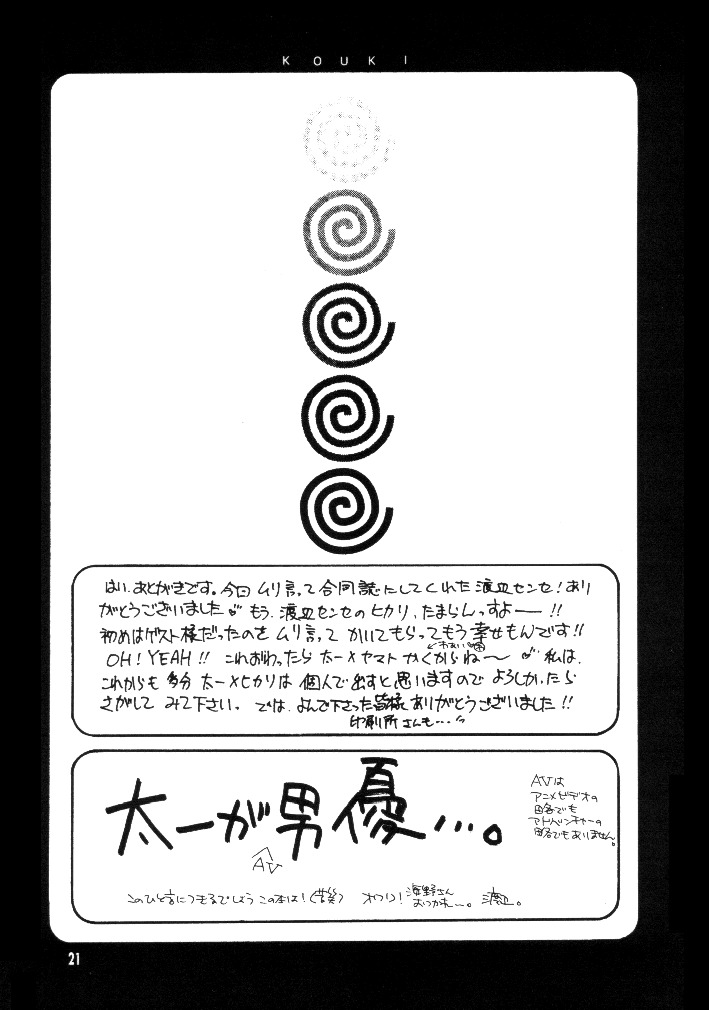 KOUKI
はい、あとがきです。今回ムリ言って合同誌にしてくれた渡辺センセ!あり
がとうございました もう、渡辺センセのヒカリ、たまらんっすよー!!
初めはゲスト様だったのをムリ言ってかいてもらってもう幸せもんです!!
OH! YEAH!! これおわったら 太一×ヤマト かくからね〜 私は、
これからも多分 太一×ヒカリは個人で出すと思いますのでよろしかったら
さがしてみて下さい。では、よんで下さった皆様ありがとうございました!!
印刷所さんも…
太一が男優…。
AV
AVは
アニメビデオの
略でも
アドベンチャーの
略でもありません。
このひと言につきるでしょうこの本は!(苦笑) オワリ! 海野さん
おつかれー。 渡辺。
21